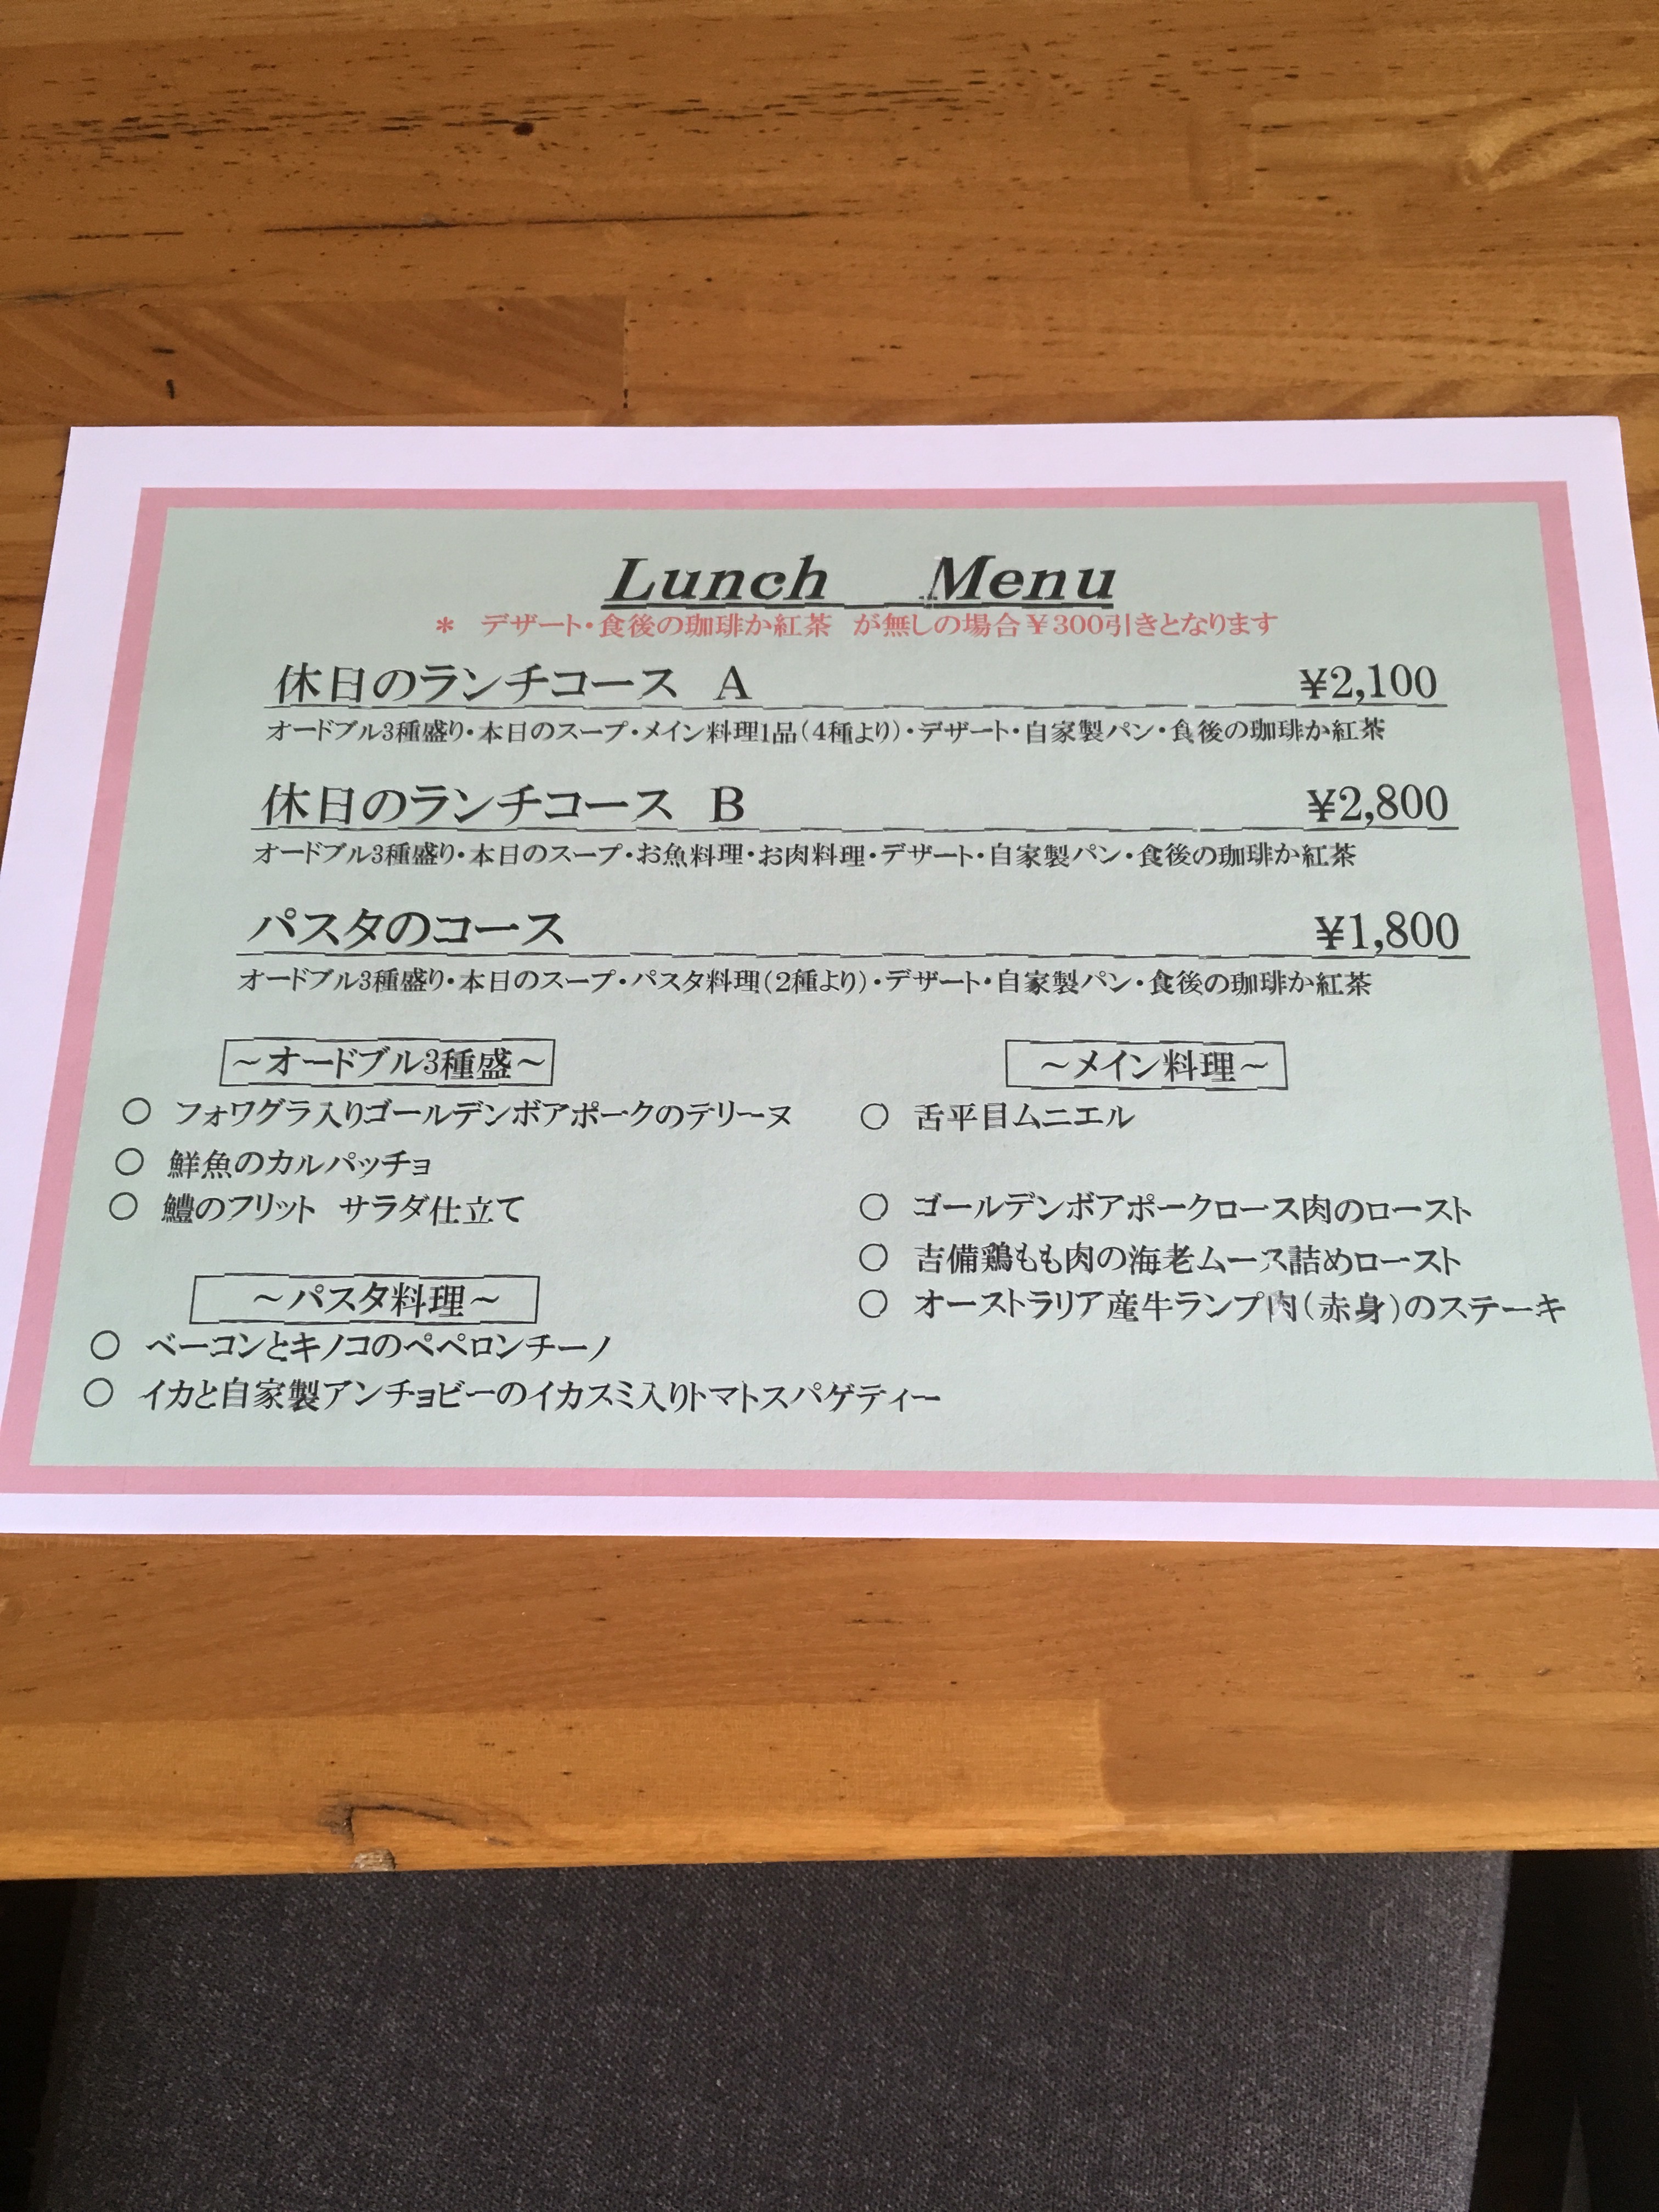 Lunch Menu
＊ デザート・食後の珈琲か紅茶 が無しの場合￥300引きとなります
休日のランチコース A ¥2,100
オードブル3種盛り・本日のスープ・メイン料理1品(4種より)・デザート・自家製パン・食後の珈琲か紅茶
休日のランチコース B ¥2,800
オードブル3種盛り・本日のスープ・お魚料理・お肉料理・デザート・自家製パン・食後の珈琲か紅茶
パスタのコース ¥1,800
オードブル3種盛り・本日のスープ・パスタ料理(2種より)・デザート・自家製パン・食後の珈琲か紅茶
～オードブル3種盛～
○ フォワグラ入りゴールデンボアポークのテリーヌ
○ 鮮魚のカルパッチョ
○ 鱧のフリット サラダ仕立て
～パスタ料理～
○ ベーコンとキノコのペペロンチーノ
○ イカと自家製アンチョビーのイカスミ入りトマトスパゲティー
～メイン料理～
○ 舌平目ムニエル
○ ゴールデンボアポークロース肉のロースト
○ 吉備鶏もも肉の海老ムース詰めロースト
○ オーストラリア産牛ランプ肉(赤身)のステーキ